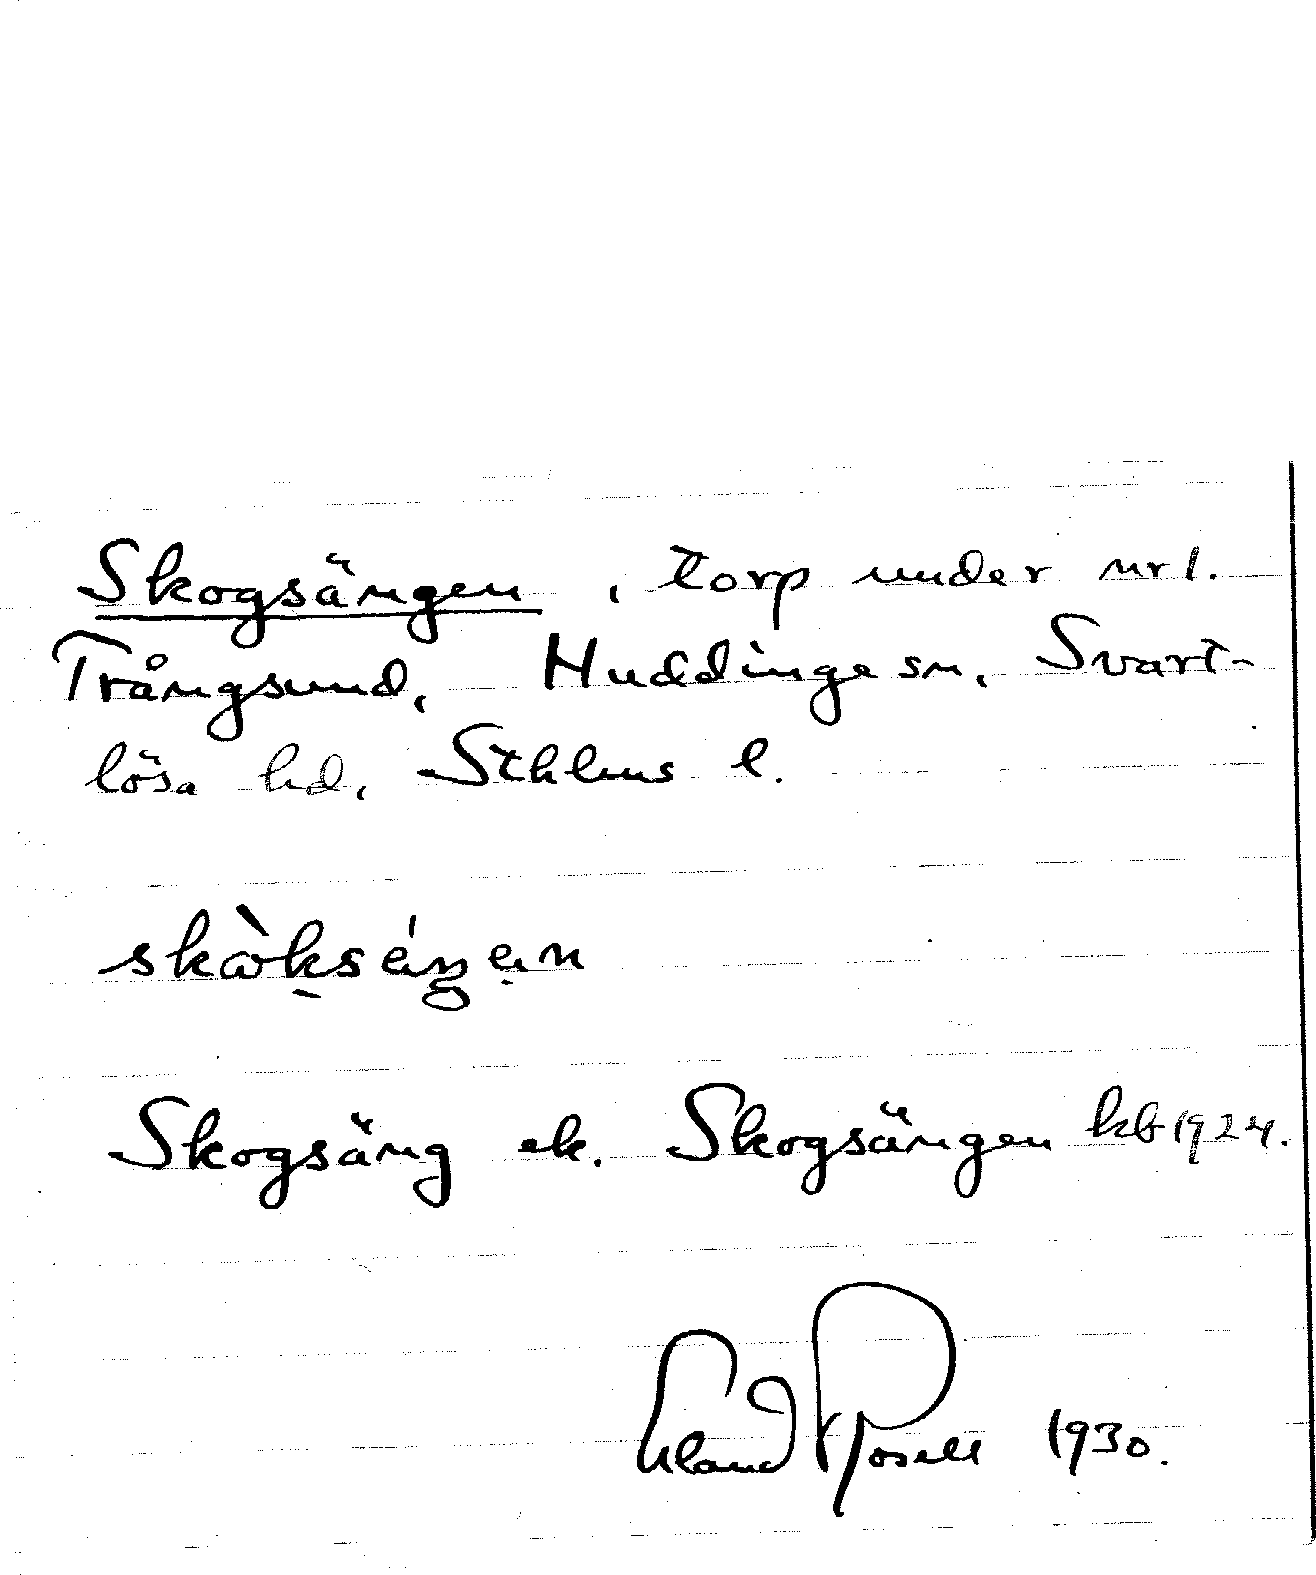 Skogsängen, torp under nr 1.
Trångsund, Huddinge sn, Svart-
lösa hd, Sthlms l.
skɷ̀kséŋen
Skogsäng ek. Skogsängen kb 1924.
Erland Rosell 1930.